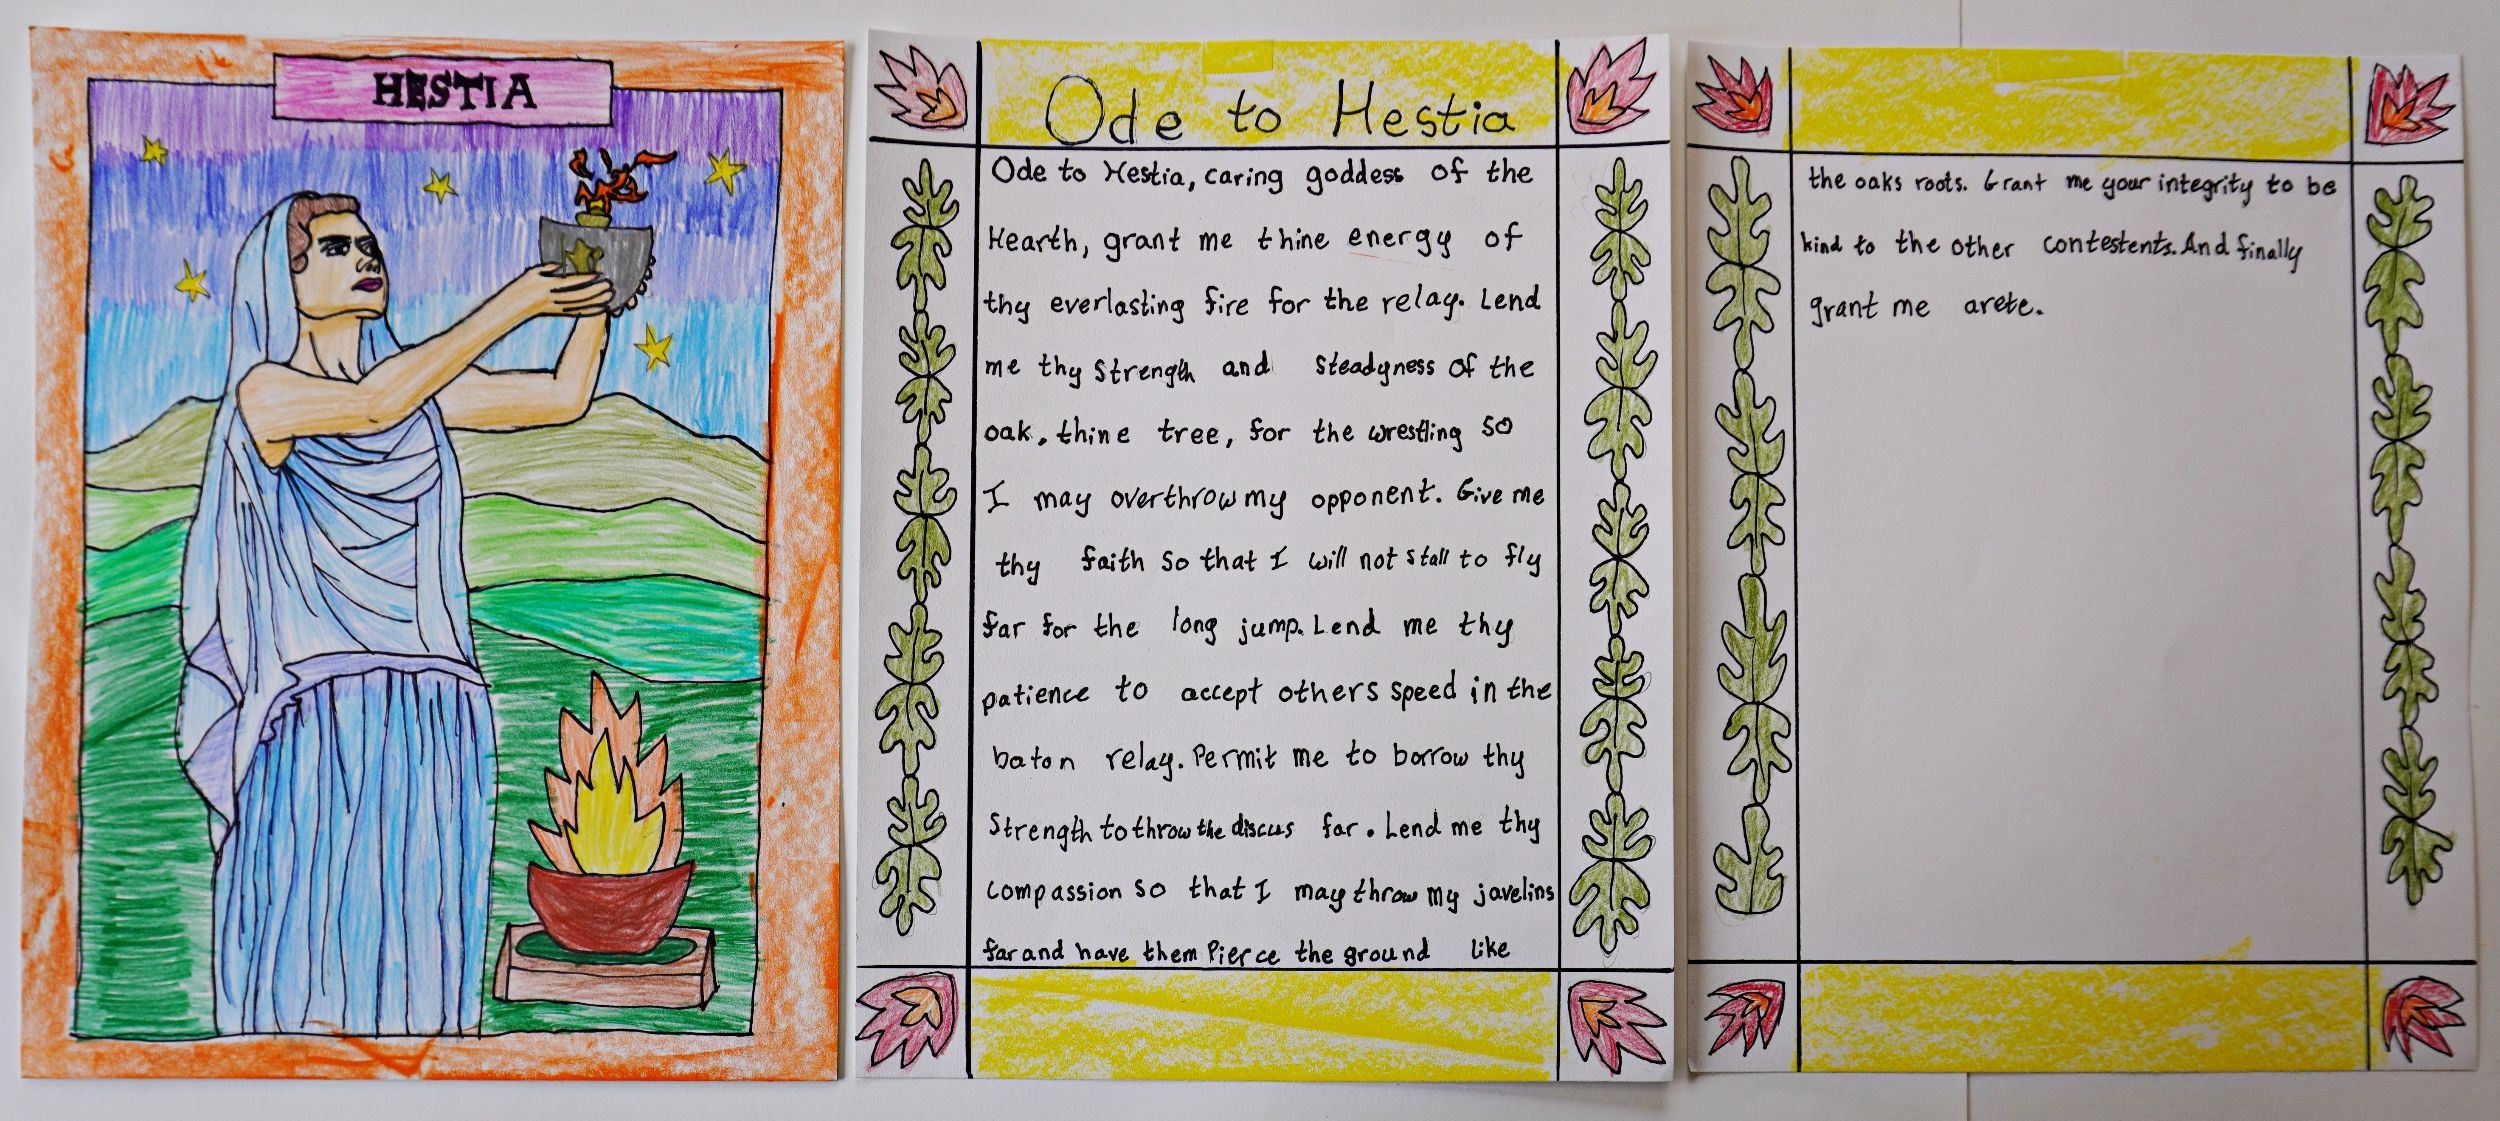 HESTIA
Ode to Hestia
Ode to Hestia, caring goddess of the
Hearth, grant me thine energy of
thy everlasting fire for the relay. Lend
me thy strength and steadyness of the
oak, thine tree, for the wrestling so
I may overthrow my opponent. Give me
thy faith so that I will not stall to fly
far for the long jump. Lend me thy
patience to accept others speed in the
baton relay. Permit me to borrow thy
strength to throw the discus far. Lend me thy
compassion so that I may throw my javelins
far and have them Pierce the ground like
the oaks roots. Grant me your integrity to be
kind to the other contestents. And finally
grant me arete.